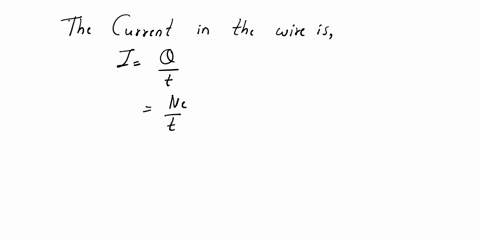 The Current in the wire is,
I = Q/t
= Ne/t